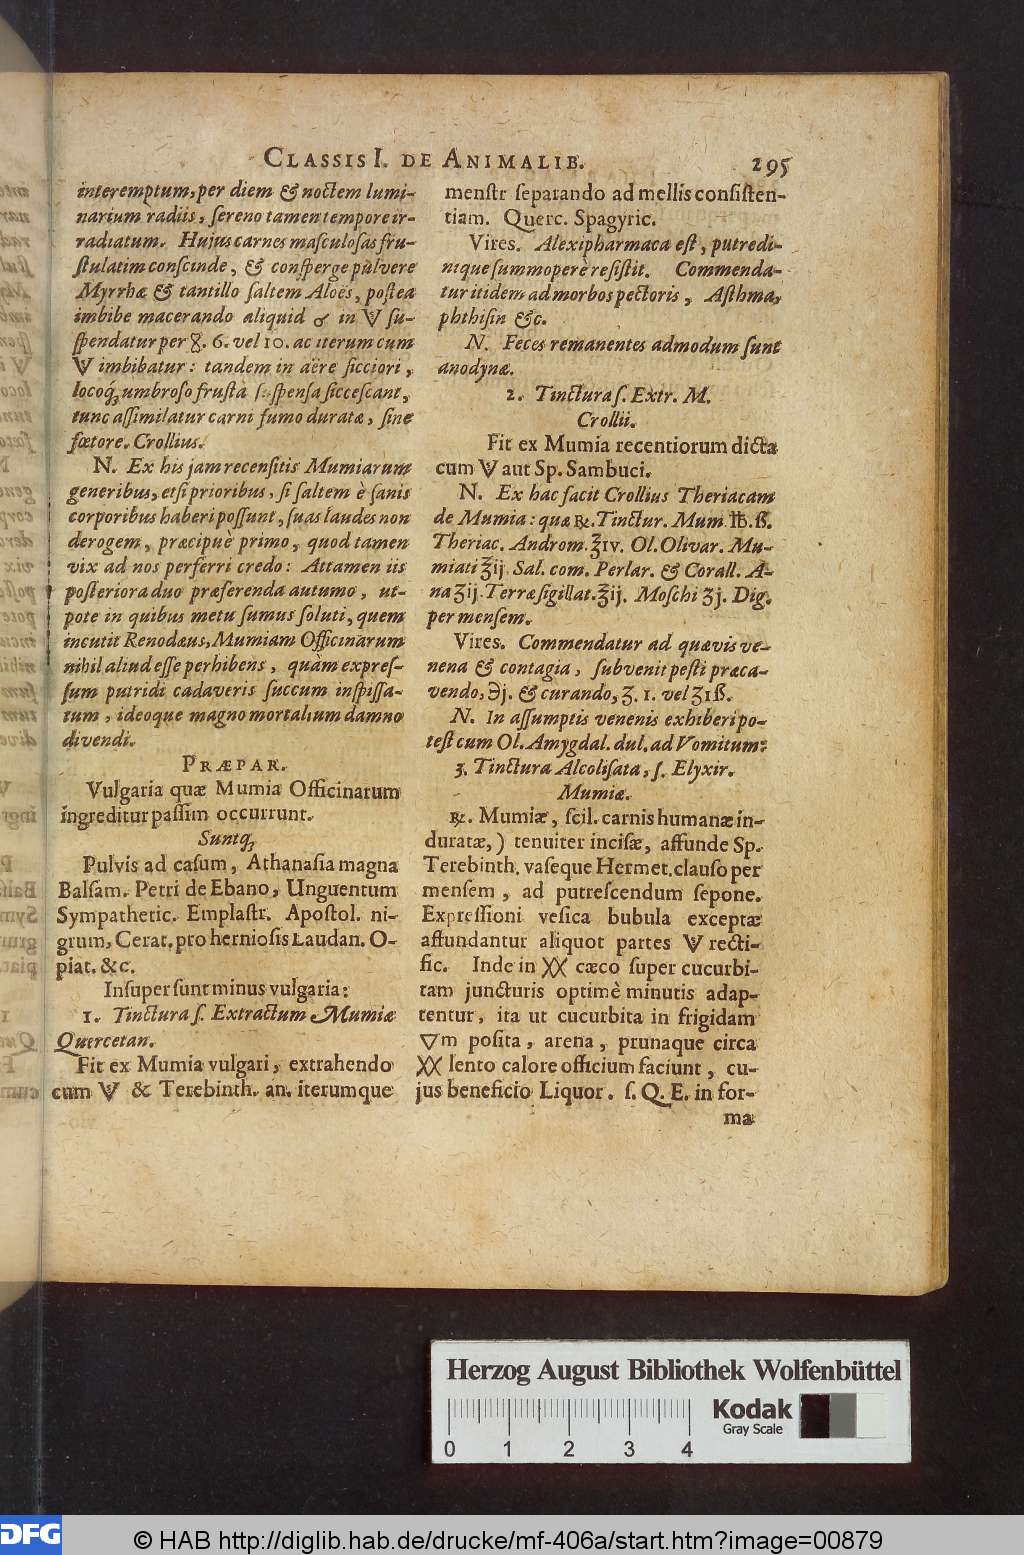 CLASSIS I. DE ANIMALIB. 295
interemptum, per diem & noctem lumi-
narium radiis, sereno tamen tempore ir-
radiatum. Hujus carnes masculosas fru-
stulatim conscinde, & consperge pulvere
Myrrhæ & tantillo saltem Aloës, postea
imbibe macerando aliquid ♂ in su-
spendatur per 6. vel 10. ac iterum cum
imbibatur: tandem in aëre sicciori,
locoq́; umbroso frusta suspensa siccescant,
tunc assimilatur carni fumo duratæ, sine
fœtore. Crollius.
N. Ex his jam recensitis Mumiarum
generibus, etsi prioribus, si saltem è sanis
corporibus haberi possunt, suas laudes non
derogem, præcipuè primo, quod tamen
vix ad nos perferri credo: Attamen iis
posteriora duo præferenda autumo, ut-
pote in quibus metu sumus soluti, quem
incutit Renodæus, Mumiam Officinarum
nihil aliud esse perhibens, quàm expres-
sum putridi cadaveris succum inspissa-
tum, ideoque magno mortalium damno
divendi.
PRÆPAR.
Vulgaria quæ Mumia Officinarum
ingreditur passim occurrunt.
Suntq́;
Pulvis ad casum, Athanasia magna
Balsam. Petri de Ebano, Unguentum
Sympathetic. Emplastr. Apostol. ni-
grum, Cerat. pro herniosis Laudan. O-
piat. &c.
Insuper sunt minus vulgaria:
1. Tinctura s. Extractum Mumiæ
Quercetan.
Fit ex Mumia vulgari, extrahendo
cum & Terebinth. an. iterumque
menstr separando ad mellis consisten-
tiam. Querc. Spagyric.
Vires. Alexipharmaca est, putredi-
nique summoperè resistit. Commenda-
tur itidem ad morbos pectoris, Asthma,
phthisin &c.
N. Feces remanentes admodum sunt
anodynæ.
2. Tinctura s. Extr. M.
Crollii.
Fit ex Mumia recentiorum dicta
cum aut Sp. Sambuci.
N. Ex hac facit Crollius Theriacam
de Mumia: quæ ℞. Tinctur. Mum. ℔.ß.
Theriac. Androm. ʒ̄iv. Ol. Olivar. Mu-
miati ʒ̄ij. Sal. com. Perlar. & Corall. A-
na ʒij. Terræ sigillat. ʒ̄ij. Moschi ʒj. Dig.
per mensem.
Vires. Commendatur ad quævis ve-
nena & contagia, subvenit pesti præca-
vendo, ℈j. & curando, ʒ. 1. vel ʒ1ß.
N. In assumptis venenis exhiberi po-
test cum Ol. Amygdal. dul. ad Vomitum:
3. Tinctura Alcolisata, s. Elyxir.
Mumiæ.
℞. Mumiæ, scil. carnis humanæ in-
duratæ,) tenuiter incisæ, affunde Sp.
Terebinth. vaseque Hermet. clauso per
mensem, ad putrescendum sepone.
Expressioni vesica bubula exceptæ
affundantur aliquot partes recti-
fic. Inde in XX cæco super cucurbi-
tam juncturis optimè minutis adap-
tentur, ita ut cucurbita in frigidam
▽m posita, arena, prunaque circa
XX lento calore officium faciunt, cu-
jus beneficio Liquor. s. Q. E. in for-
ma
Herzog August Bibliothek Wolfenbüttel
0 1 2 3 4
Kodak
Gray Scale
DFG
© HAB http://diglib.hab.de/drucke/mf-406a/start.htm?image=00879